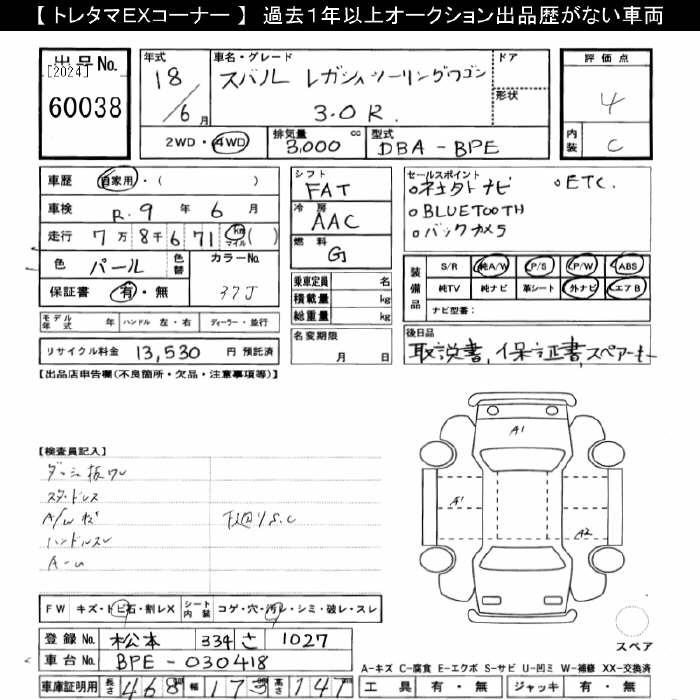 【 トレタマEXコーナー 】 過去１年以上オークション出品歴がない車両
出品No.
[2024]
60038
年式
18 / 6 月
車名・グレード
スバル レガシィツーリングワゴン
3.0R.
ドア
形状
評価点
4
内装
C
2WD・4WD
排気量
3,000 cc
型式
DBA-BPE
車歴 自家用・( )
車検 R.9 年 6 月
走行 7万 8千6 71 km マイル ( )
色 パール 色替
カラーNo. 37J
保証書 有・無
シフト
FAT
冷房
AAC
燃料
G
乗車定員 名
積載量 kg
総重量 kg
名変期限
月 日
セールスポイント
○ネオタトナビ ○ETC.
○BLUETOOTH
○バックカメラ
装備品
S/R 純A/W P/S P/W ABS
純TV 純ナビ 革シート 外ナビ エアB
ナビ型番：
モデル年式 年 ハンドル 左・右 ディーラー・並行
リサイクル料金 13,530 円 預託済
後日品
取説書,保証書,スペアーキー
【出品店申告欄(不良箇所・欠品・注意事項等)】
【検査員記入】
ダッシュ板ワレ
スタッドレス
A/Wキズ
下廻りS.C
ハンドルスレ
A1
A1
A2
FW キズ・トビ石・割レX シート内装 コゲ・穴・汚レ・シミ・破レ・スレ
登録No. 松本 334 さ 1027
車台No. BPE-030418
車庫証明用 長さ 468 幅 173 高さ 147
スペア
A-キズ C-腐食 E-エクボ S-サビ U-凹ミ W-補修 XX-交換済
工具 有・無 ジャッキ 有・無